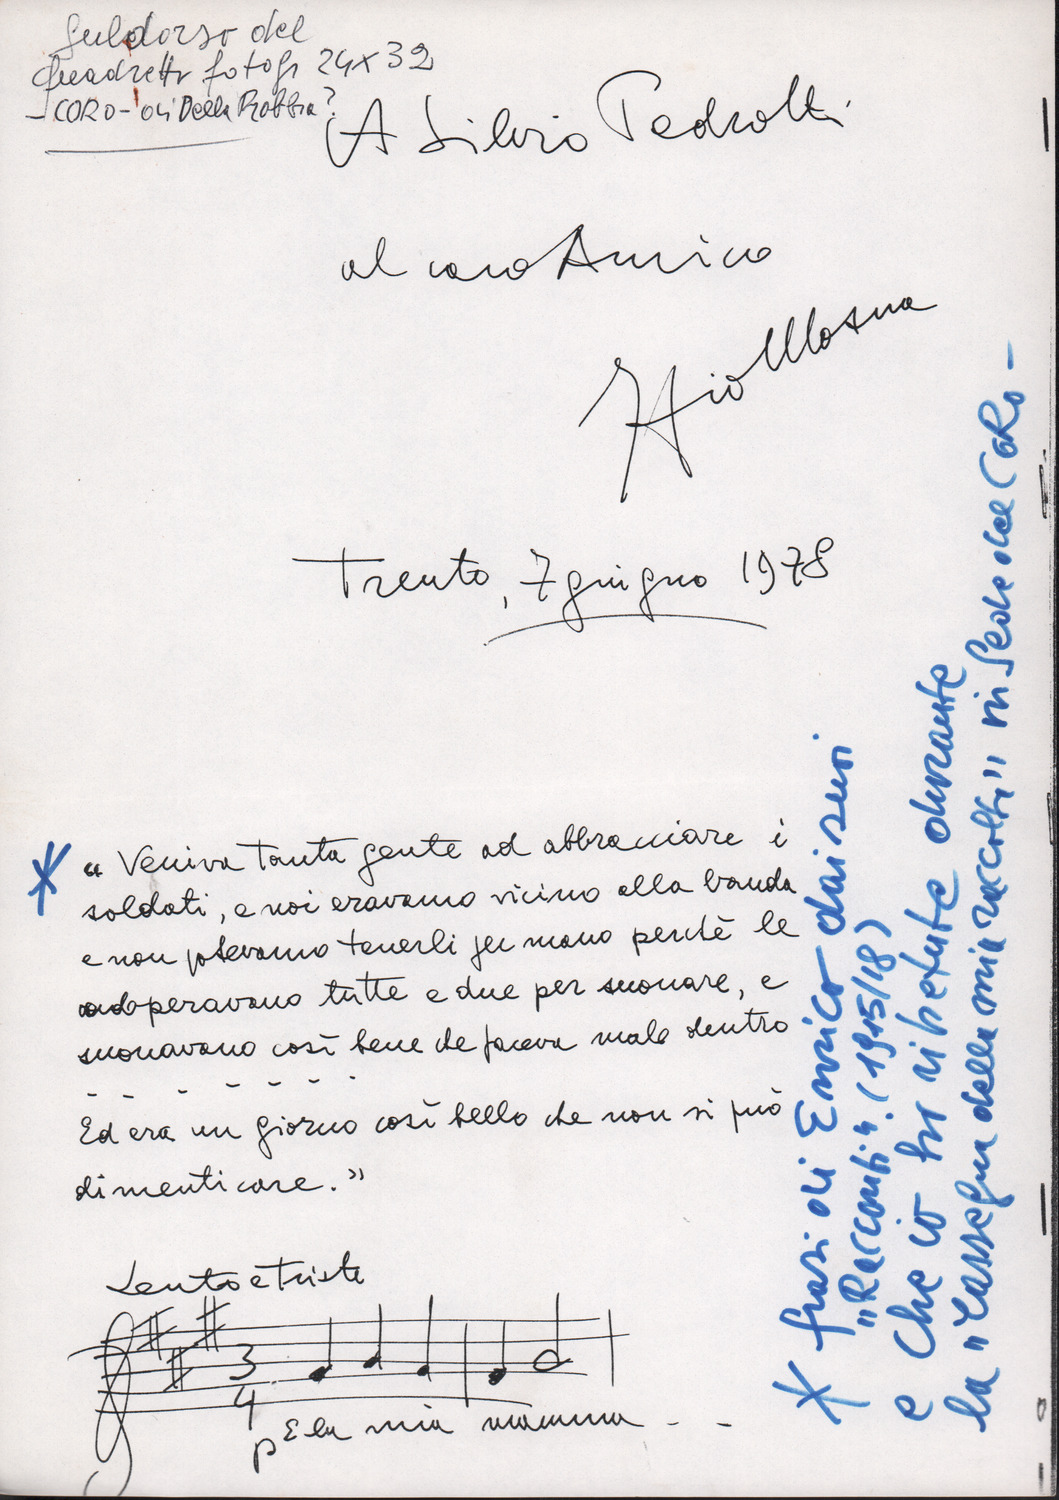 Sul dorso del
Quadretto fotogr 24x32
- CORO - di Della Robbia?
A Silvio Pedrotti
al caro Amico
Mosna
Trento, 7 giugno 1978
* "Veniva tanta gente ad abbracciare i
soldati, e noi eravamo vicino alla banda
e non potevamo tenerli per mano perchè le
adoperavano tutte e due per suonare, e
suonavano così bene che faceva male dentro
- - - - - - -
Ed era un giorno così bello che non si può
dimenticare."
Lento e triste
3
4
p E la mia mamma - - -
* frasi di Enrico dai suoi
"Racconti". (1915/18)
e che io ho ripetute durante
la "rassegna della mia raccolta" in Sede del CORO -